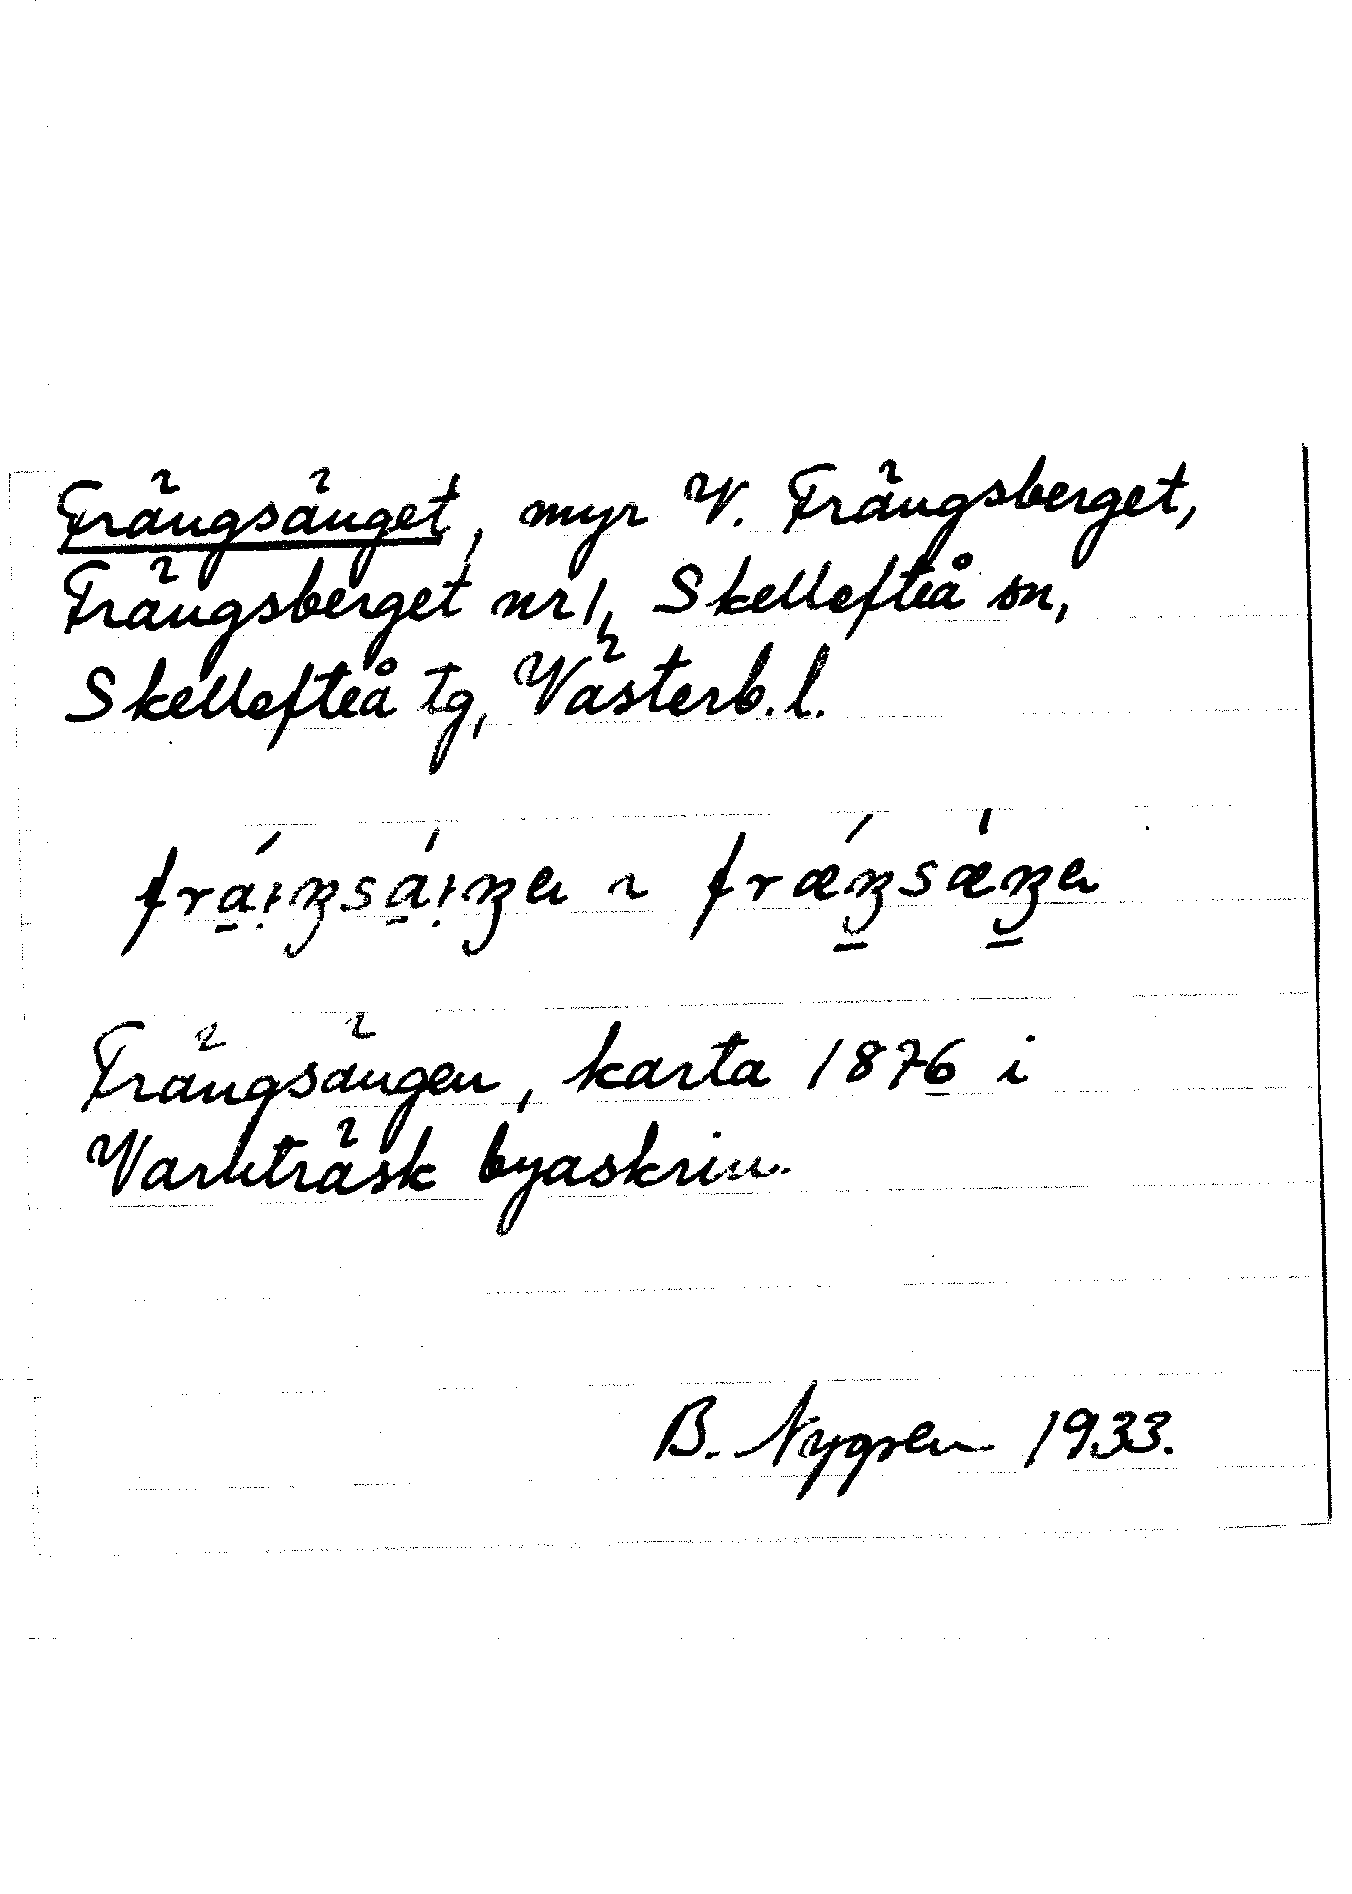 Frängsänget, myr V. Frängsberget,
Frängsberget nr 1, Skellefteå sn,
Skellefteå tg, Västerb. l.
Frängsängen, karta 1876 i
Varuträsk byaskrin.
B. Nygren 1933.